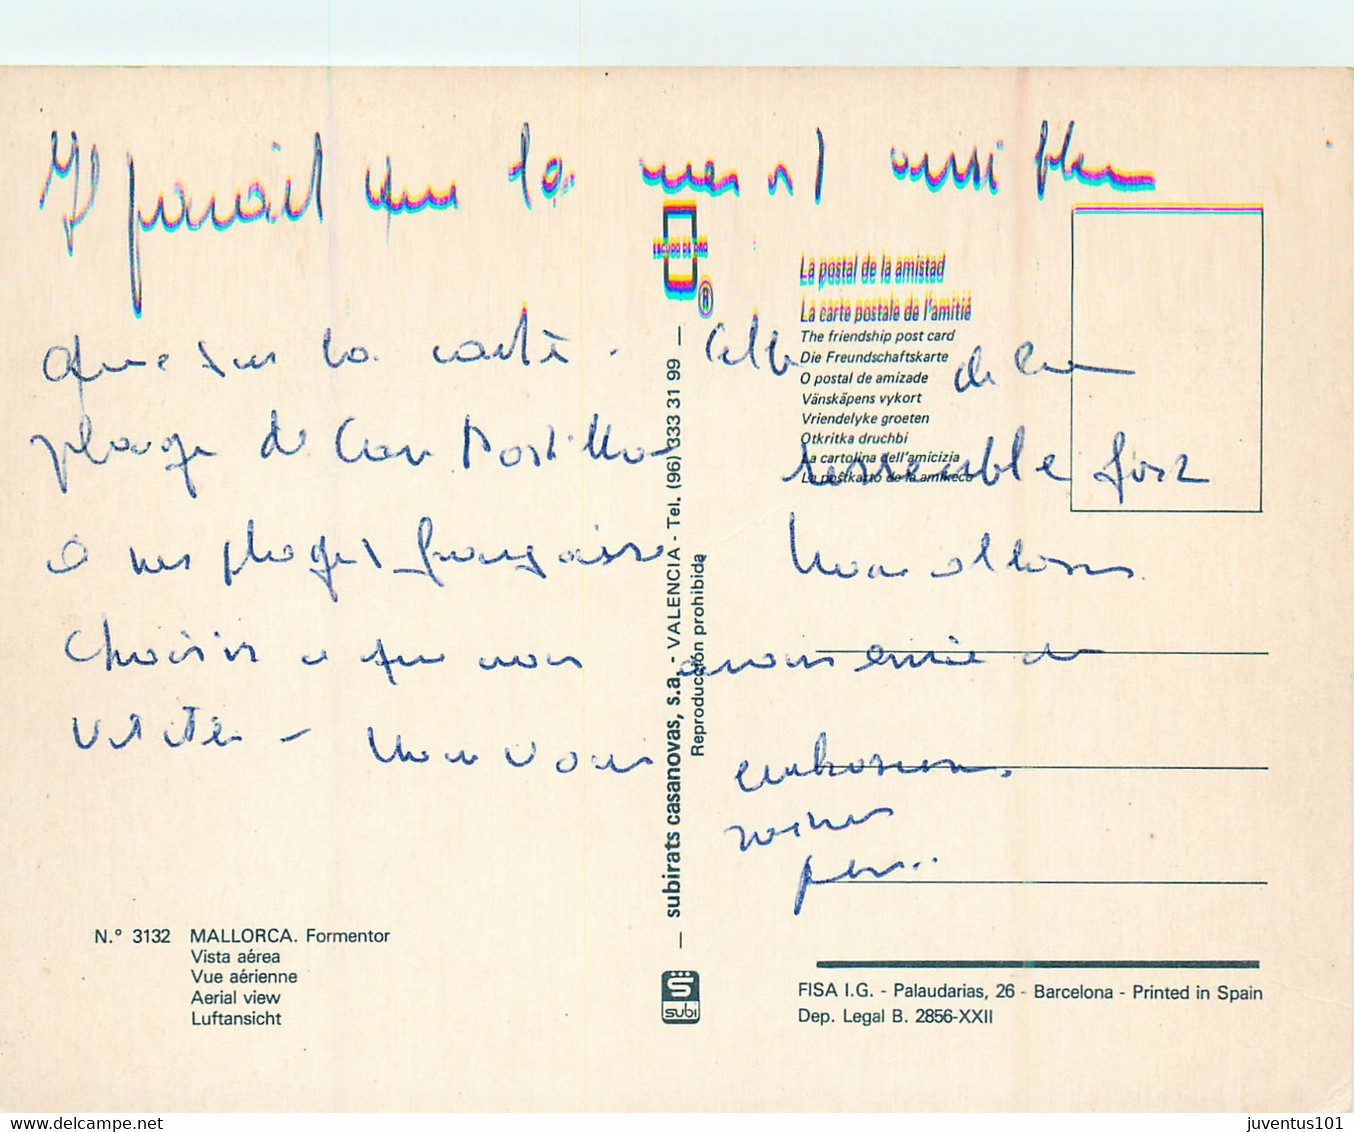 Il parait que la mer est aussi bleu
ESCUDO DE ORO
®
La postal de la amistad
La carte postale de l'amitié
The friendship post card
Die Freundschaftskarte
O postal de amizade
Vänskäpens vykort
Vriendelyke groeten
Otkritka druchbi
La cartolina dell'amicizia
La postkarto de la amikeco
que sur la carte. Celle de la
plage de Can Pastilla ressemble fort
à nos plages françaises Nous allons
choisir ce que nous avons envie de
visiter - Nous vous embrassons.
subirats casanovas, s.a. - VALENCIA - Tel. (96) 333 31 99
Reproducción prohibida
N.° 3132 MALLORCA. Formentor
Vista aérea
Vue aérienne
Aerial view
Luftansicht
subi
FISA I.G. - Palaudarias, 26 - Barcelona - Printed in Spain
Dep. Legal B. 2856-XXII
juventus101